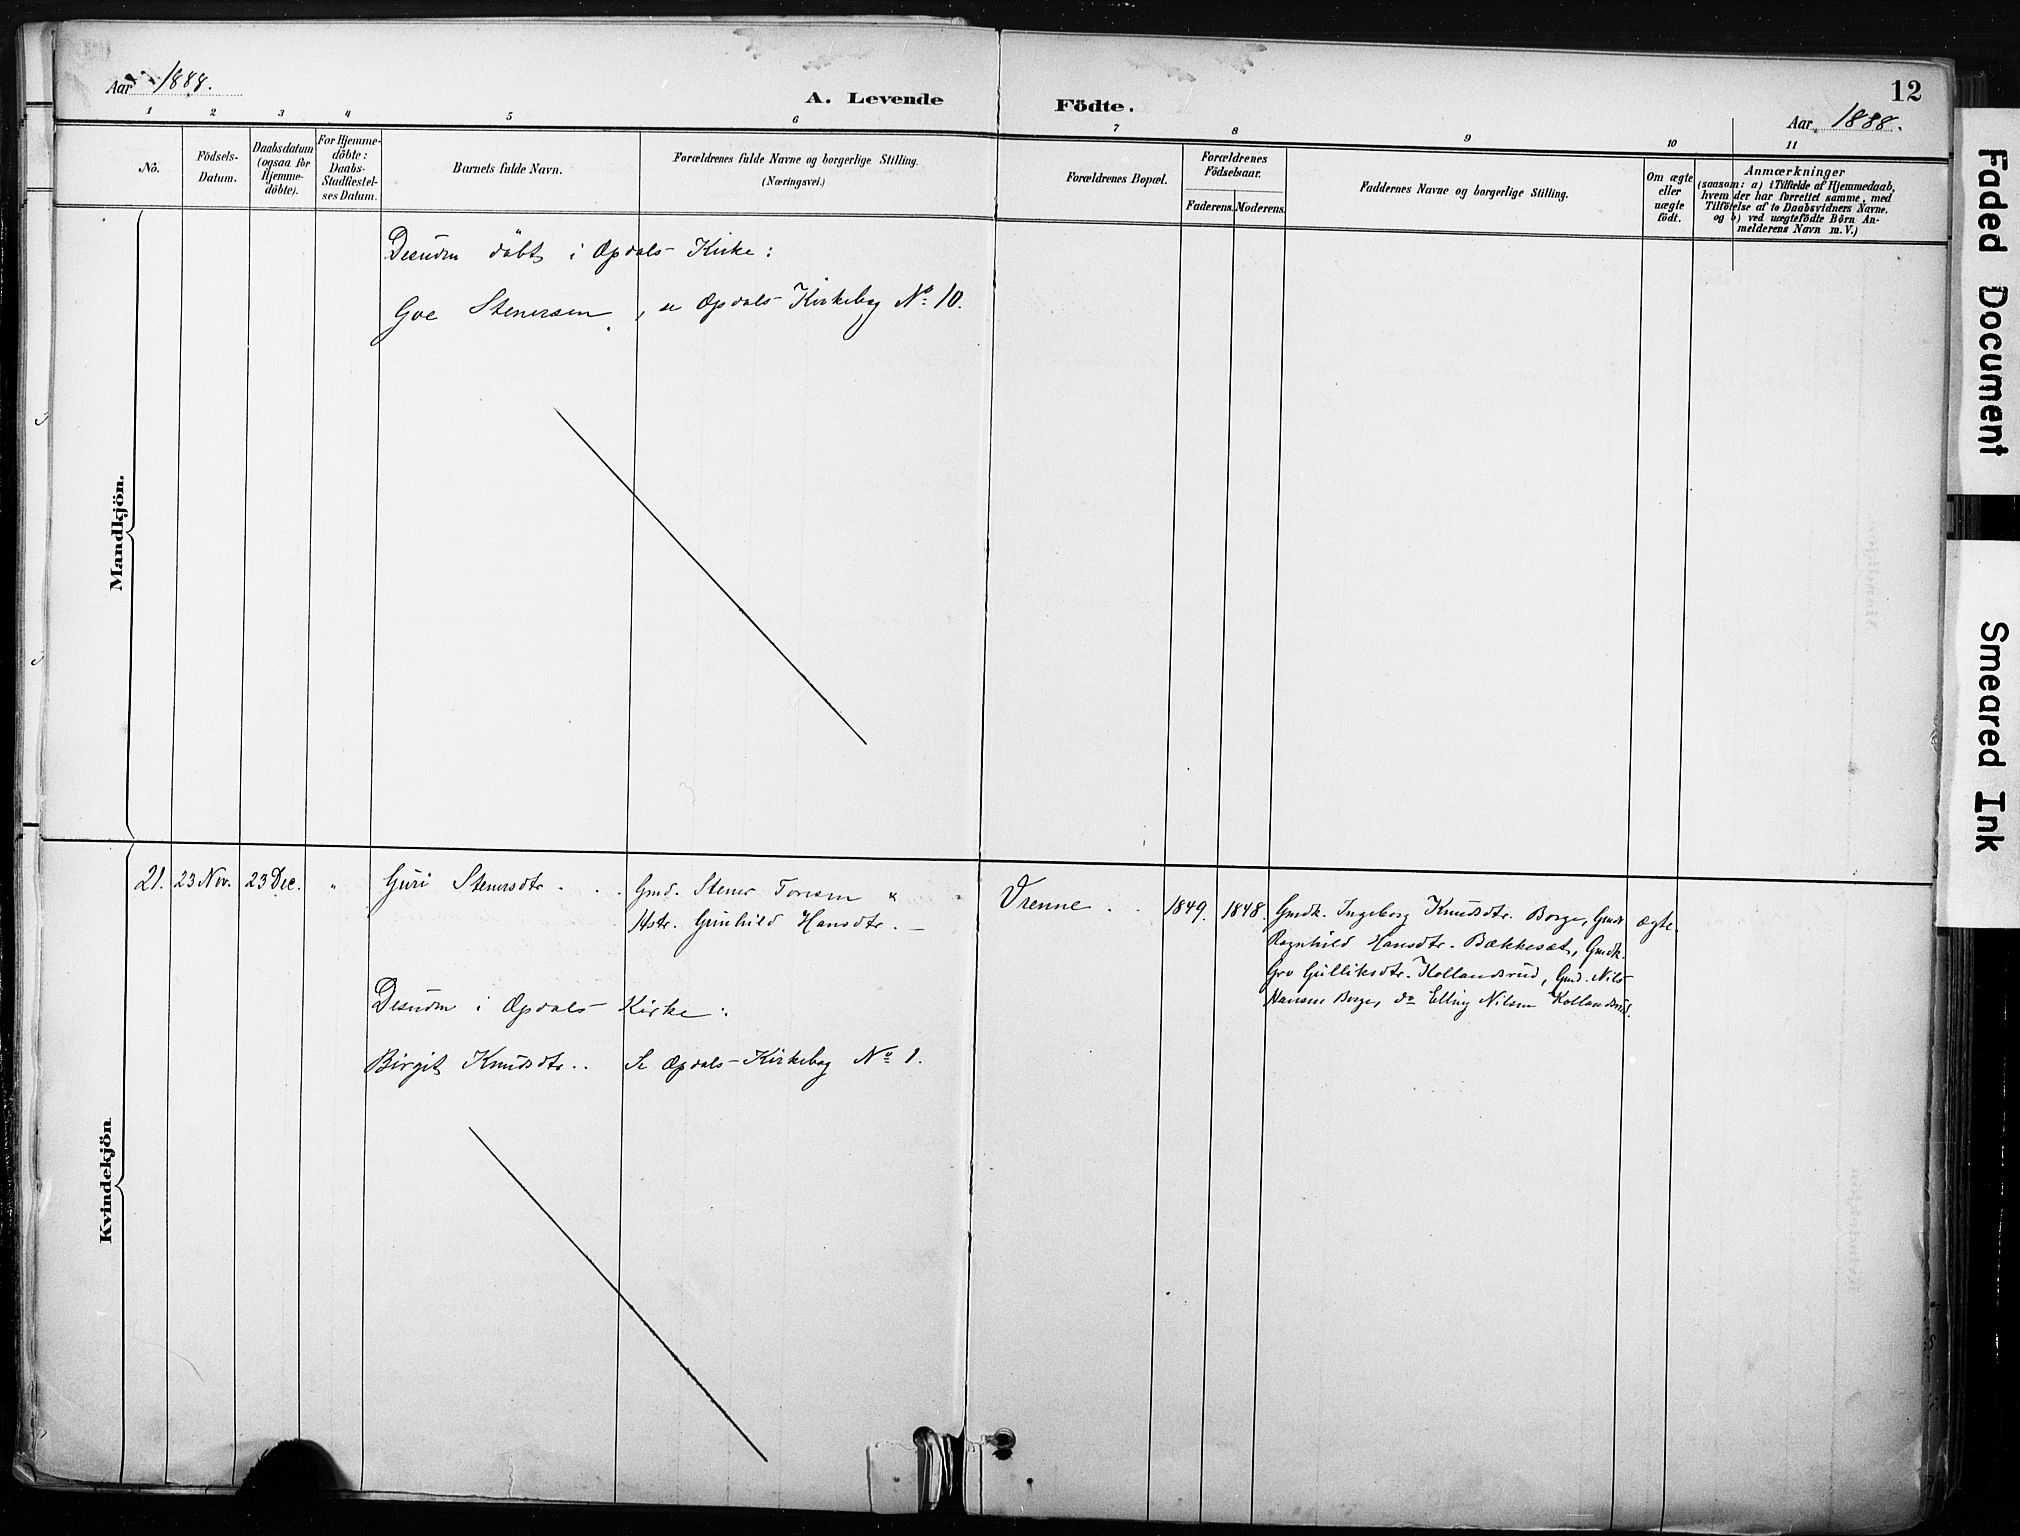 Aar 1888.
A. Levende Födte.
12
Aar 1888.
1 2 3 4 5 6 7 8 9 10 11
Nô.
Födsels-
Datum.
Daabsdatum
(ogsaa for
Hjemme-
döbte).
For Hjemme-
döbte:
Daabs-
Stadfæstel-
ses Datum.
Barnets fulde Navn.
Forældrenes fulde Navne og borgerlige Stilling.
(Næringsvei.)
Forældrenes Bopæl.
Forældrenes
Födselsaar.
Faderens. Moderens.
Faddernes Navne og borgerlige Stilling.
Om ægte
eller
uægte
födt.
Anmærkninger
(saasom: a) i Tilfælde af Hjemmedaab,
hvem der har forrettet samme, med
Tilföielse af to Daabsvidners Navne.
og b) ved uægtefödte Börn An-
melderens Navn m. V.)
Mandkjön.
Desuden döbt i Opdals Kirke:
Goe Stenersen, se Opdals Kirkebog No 10.
Kvindekjön
21. 23 Nov. 23 Dec. "
Guri Stenersdtr.
Gmd. Stener Toresen &
Hstr. Gunhild Hansdtr.
Vrenne
1849. 1848.
Gmdk. Ingeborg Knudsdtr. Borge, Gmdk
Ragnhild Hansdtr. Bækkesæt, Gmdk.
Gro Gulliksdtr. Kollandsrud, Gmd. Nils
Hansen Borge, do Elling Nilsen Kollandsrud.
ægte.
Desuden i Opdals Kirke:
Birgit Knudsdtr. Se Opdals Kirkebog No 1.
Faded Document
Smeared Ink